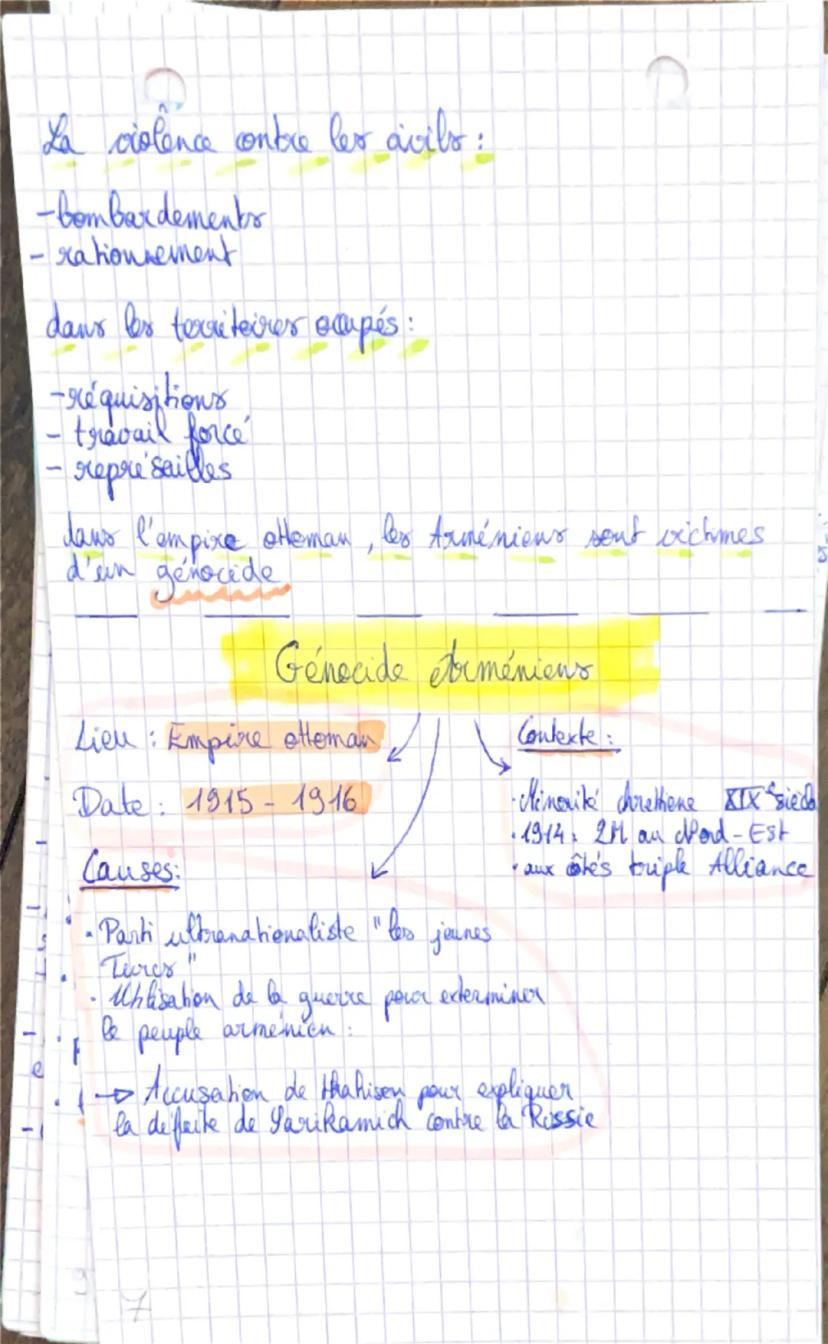 La violence contre les civils :
- bombardements
- rationnement
dans les territoires occupés :
- réquisitions
- travail forcé
- représailles
dans l'empire ottoman, les Arméniens sont victimes
d'un génocide
Génocide Arméniens
Lieu : Empire ottoman
Date : 1915 - 1916
Contexte :
· Minorité chrethiene XIXe siècle
· 1914 : 2M au Nord-Est
· aux côtés triple Alliance
Causes :
· Parti ultranationaliste "les jeunes
Turcs"
· Utilisation de la guerre pour exterminer
le peuple arménien :
→ Accusation de thahison pour expliquer
la défaite de Sarikamich contre la Russie
7